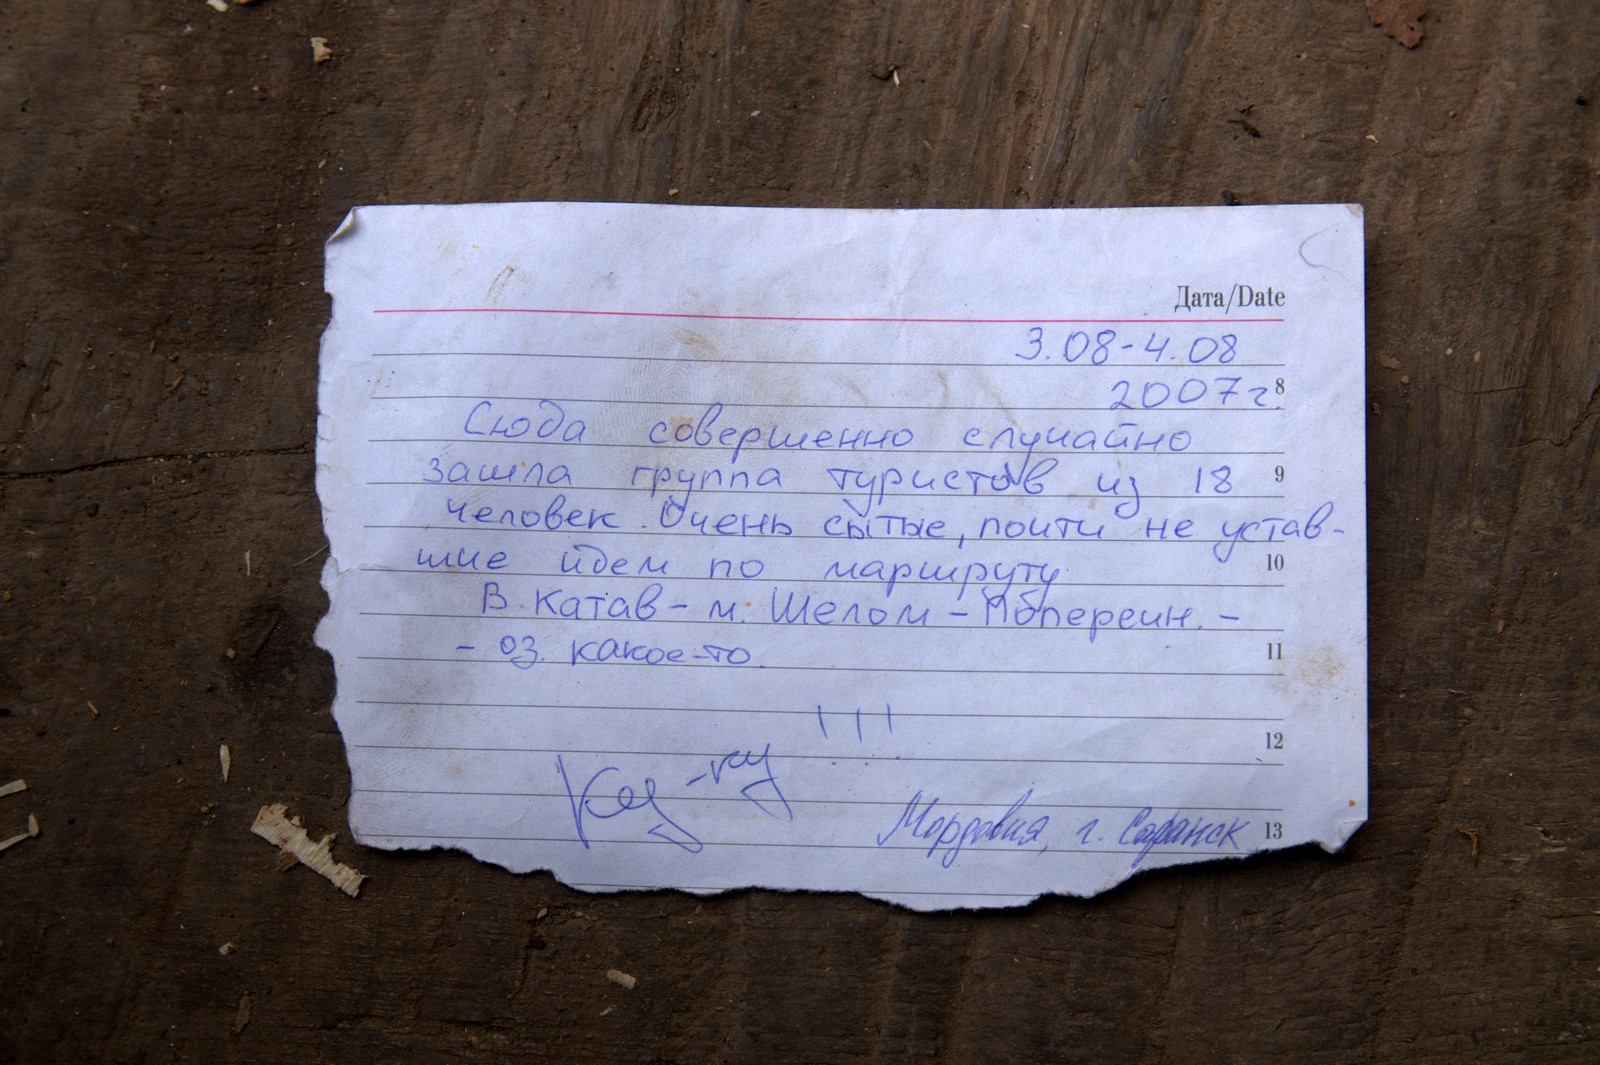 Дата/Date
3.08-4.08
8
2007г.
Сюда совершенно случайно
зашла группа туристов из 18
9
человек. Очень сытые, почти не устав-
шие идем по маршруту
10
В. Катав - м. Шелом -
- оз. какое-то.
11
!!!
12
Мордовия, г. Саранск
13